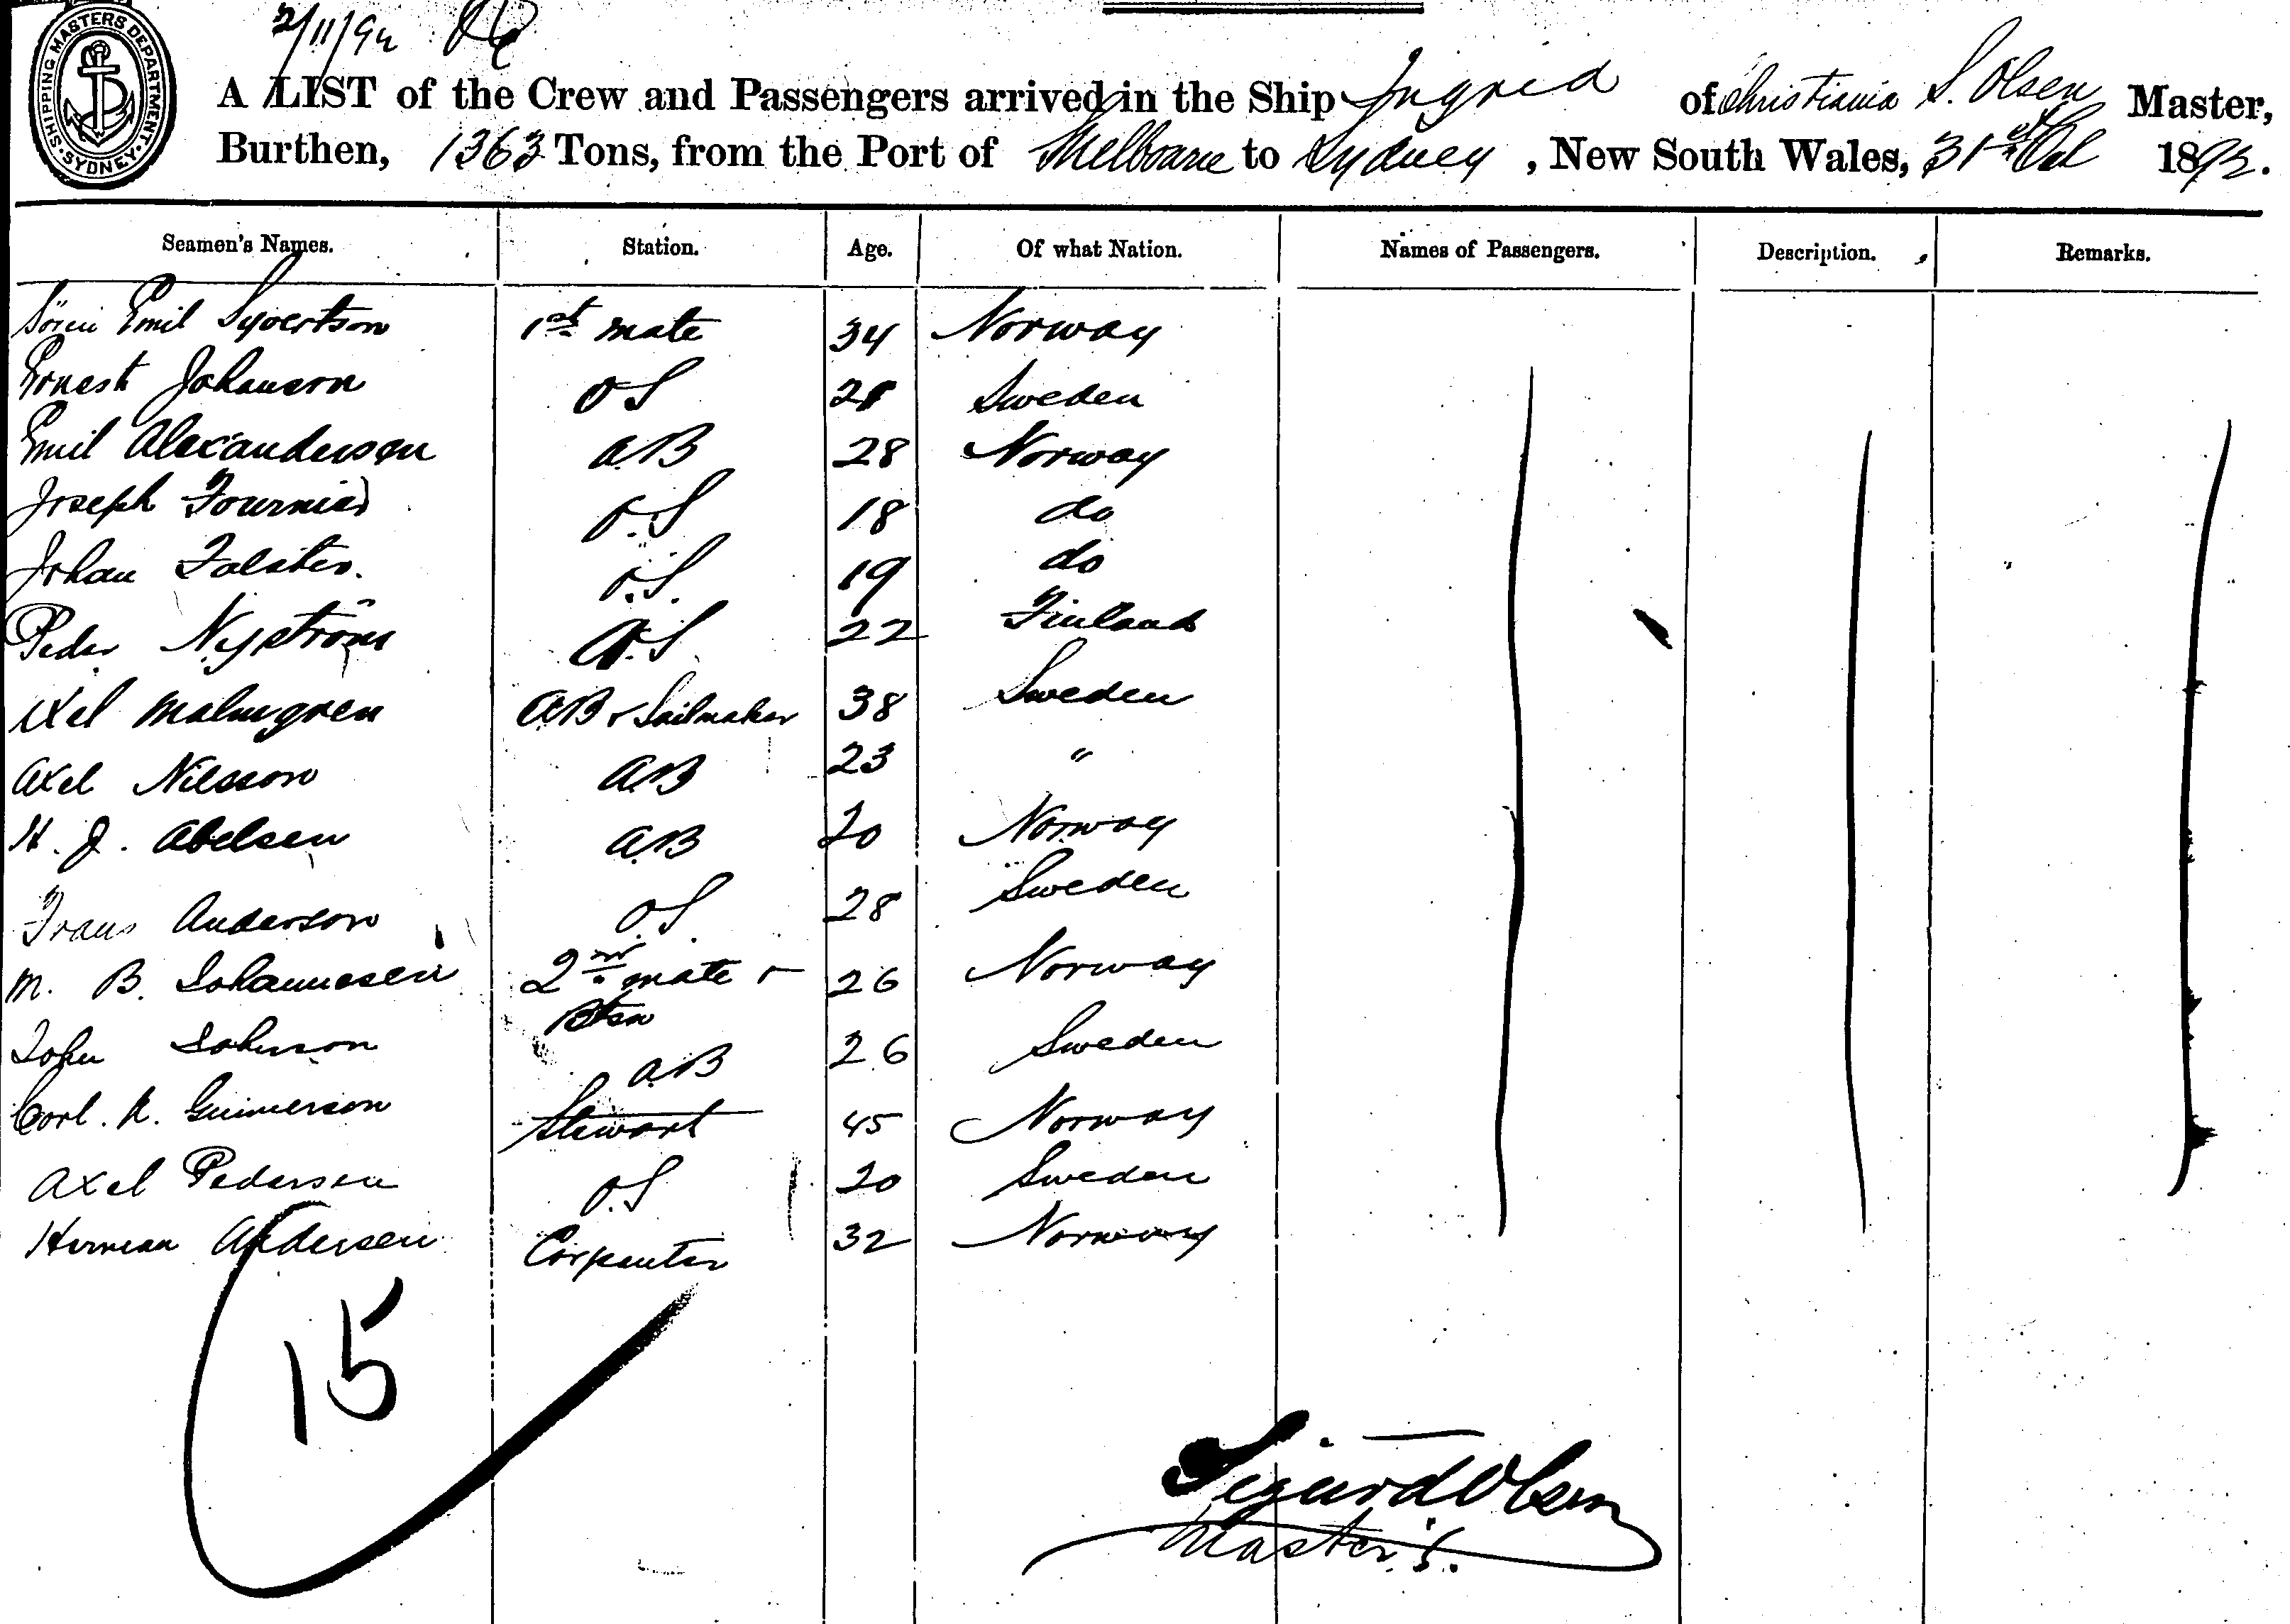 2/11/92
SHIPPING MASTERS DEPARTMENT. SYDNEY.
A LIST of the Crew and Passengers arrived in the Ship Ingrid of Christiania S. Olsen Master,
Burthen, 1363 Tons, from the Port of Melbourne to Sydney, New South Wales, 31st Oct 1892.
Seamen's Names. Station. Age. Of what Nation. Names of Passengers. Description. Remarks.
Emil Syvertson 1st mate 34 Norway
Ernest Johanson OS 21 Sweden
Emil Alexandersen AB 28 Norway
Joseph Fournier O.S 18 do
Johan Falsten. O.S. 19 do
Peder Nyström S 22 Finland
Axel Malmgren AB & Sailmaker 38 Sweden
Axel Nilsson AB 23 "
H. J. Abelsen AB 20 Norway
Frans Anderson OS 28 Sweden
M. B. Johannesen 2nd mate & 26 Norway
Btsn
John Johnson AB 26 Sweden
Carl. Gunnerson Stewart 45 Norway
Axel Pedersen O.S 20 Sweden
Herman Andersen Carpenter 32 Norway
15
Sigurd Olsen
Master